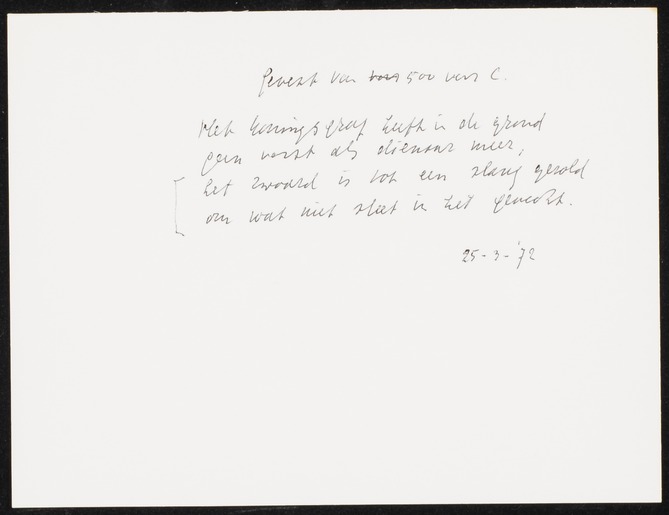 gevest van 500 voor C.
Het koningsgraf heeft in de grond
geen vorst als dienaar meer,
het zwaard is tot een slang gerold
om wat niet sleet in het gevecht.
25-3-'72